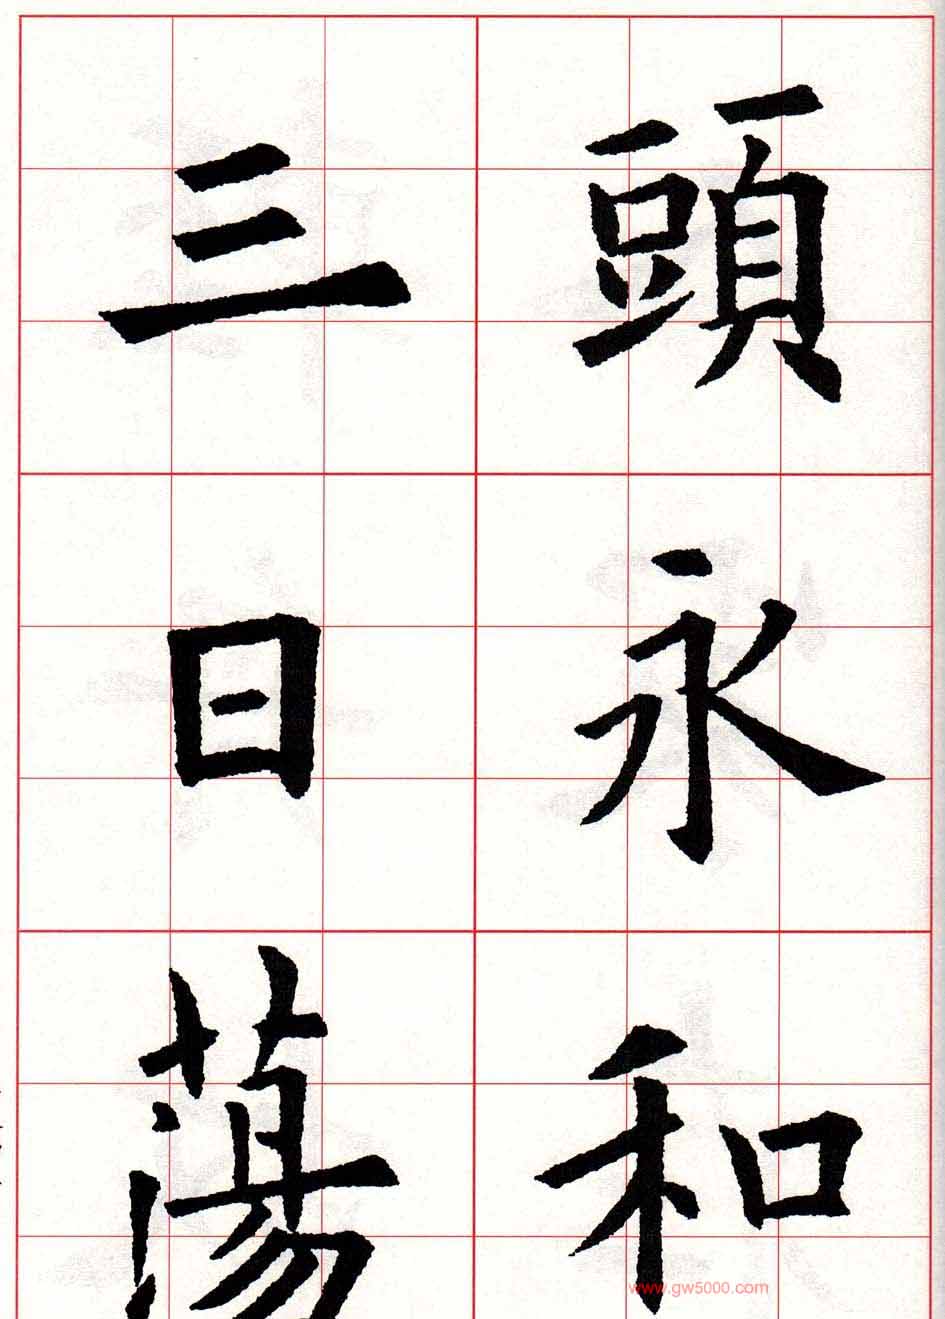 頭永和
三日蕩
www.gw5000.com